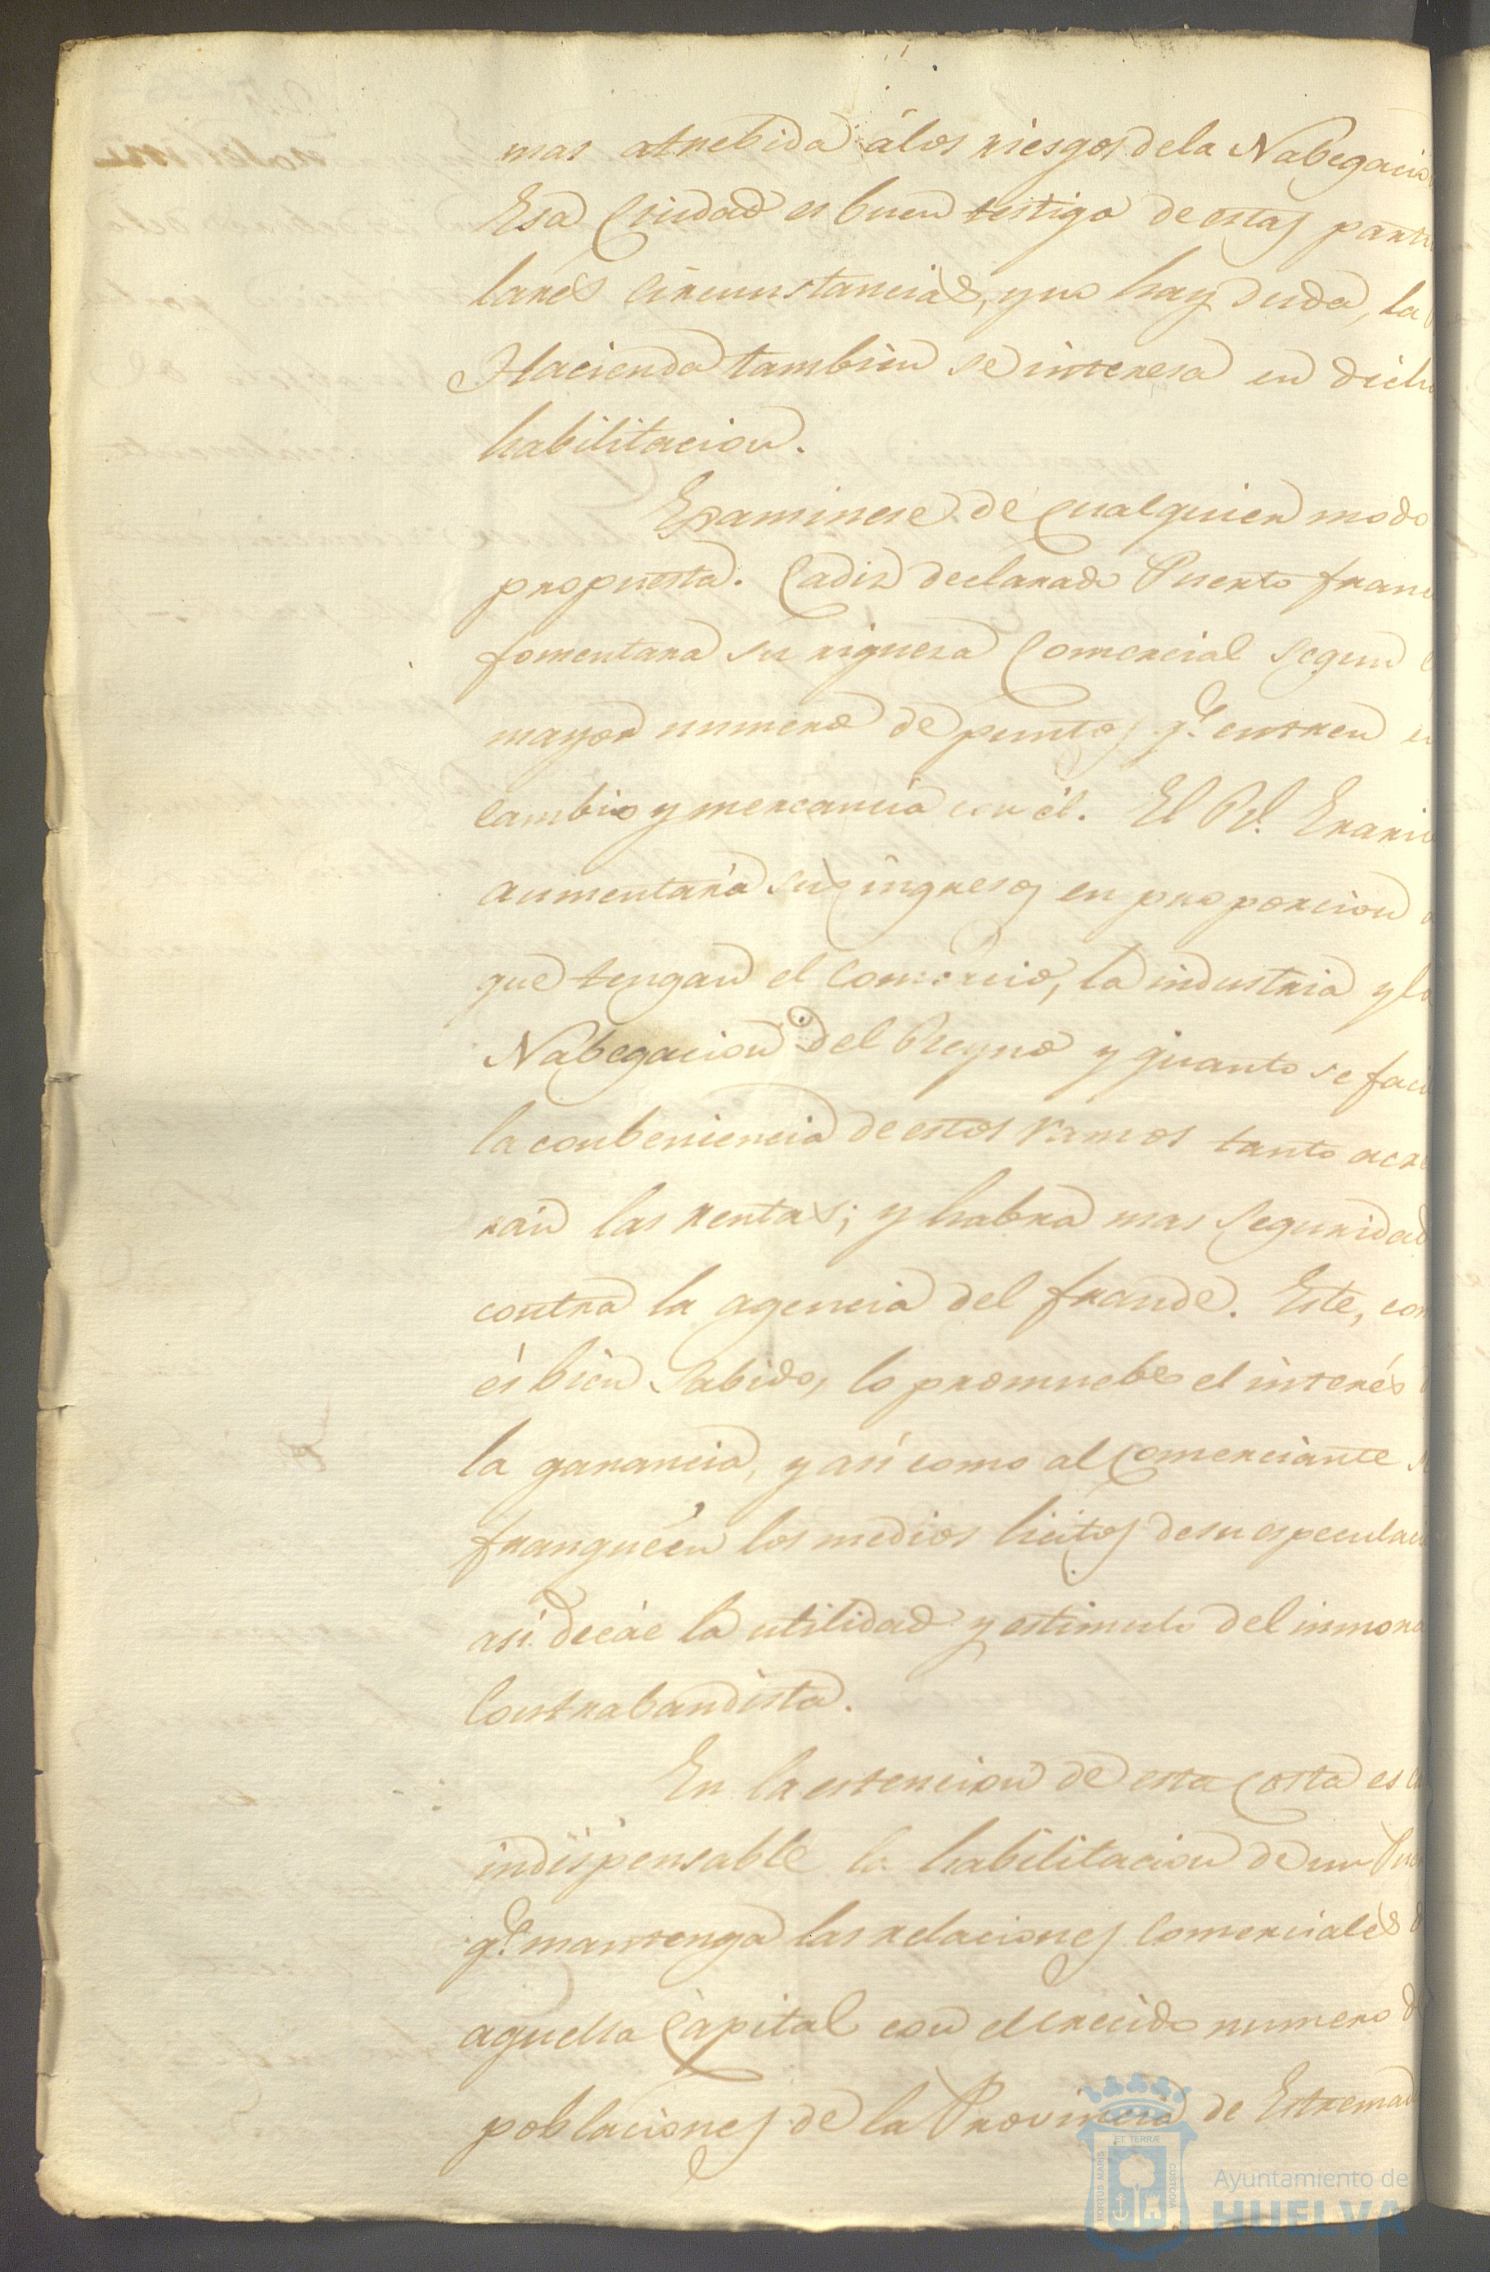 mas atrebida álos riesgos dela Nabegacio
Esa Ciudad es buen testigo de estas partic
lares circunstancias, y no hay duda, la
Hacienda tambien se interesa en dich
habilitacion.
Examinese de cualquier modo
propuesta. Cadiz declarado Puerto franc
fomentara su riqueza Comercial segun
mayor numero de puntos q.e entren en
cambio y mercancia con él. El Rl. Erario
aumentará sus ingresos en proporcion
que tengan el Comercio, la industria y la
Nabegacion del Reyno y quanto se faci
la conbeniencia de estos ramos tanto acre
rán las rentas; y habra mas Seguridad
contra la agencia del fraude. Este, com
és bien Sabido, lo promuebe el interés
la ganancia, y asi como al Comerciante
franqueén los medios licitos desu especulac
asi decáe la utilidad y estimulo del inmora
Contrabandista.
En la estencion de esta Costa es
indispensable la habilitacion de un Pue
q.e mantenga las relaciones Comerciales
aquella Capital con el crecido numero d
poblaciones de la Provincia de Estremad
ET TERRÆ
PORTUS MARIS
CUSTODIA
Ayuntamiento de
HUELVA